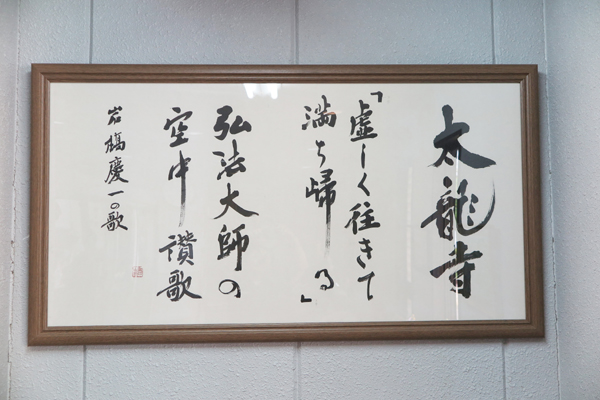 太龍寺
「虚しく往きて
満ち帰る」
弘法大師の
空中讃歌
岩橋慶一の歌